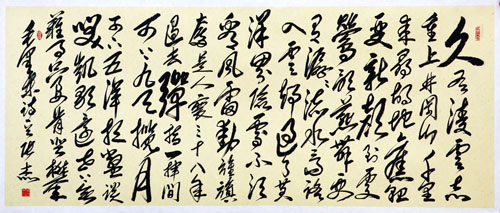 久有凌云志
重上井冈山千里
来寻故地旧貌
变新颜到处
莺歌燕舞更
有潺潺流水高路
入云端过了黄
洋界险处不须
看风雷动旌旗
奋是人寰三十八年
过去弹指一挥间
可上九天揽月
可下五洋捉鳖谈
笑凯歌还世上无
难事只要肯登攀
毛泽东诗